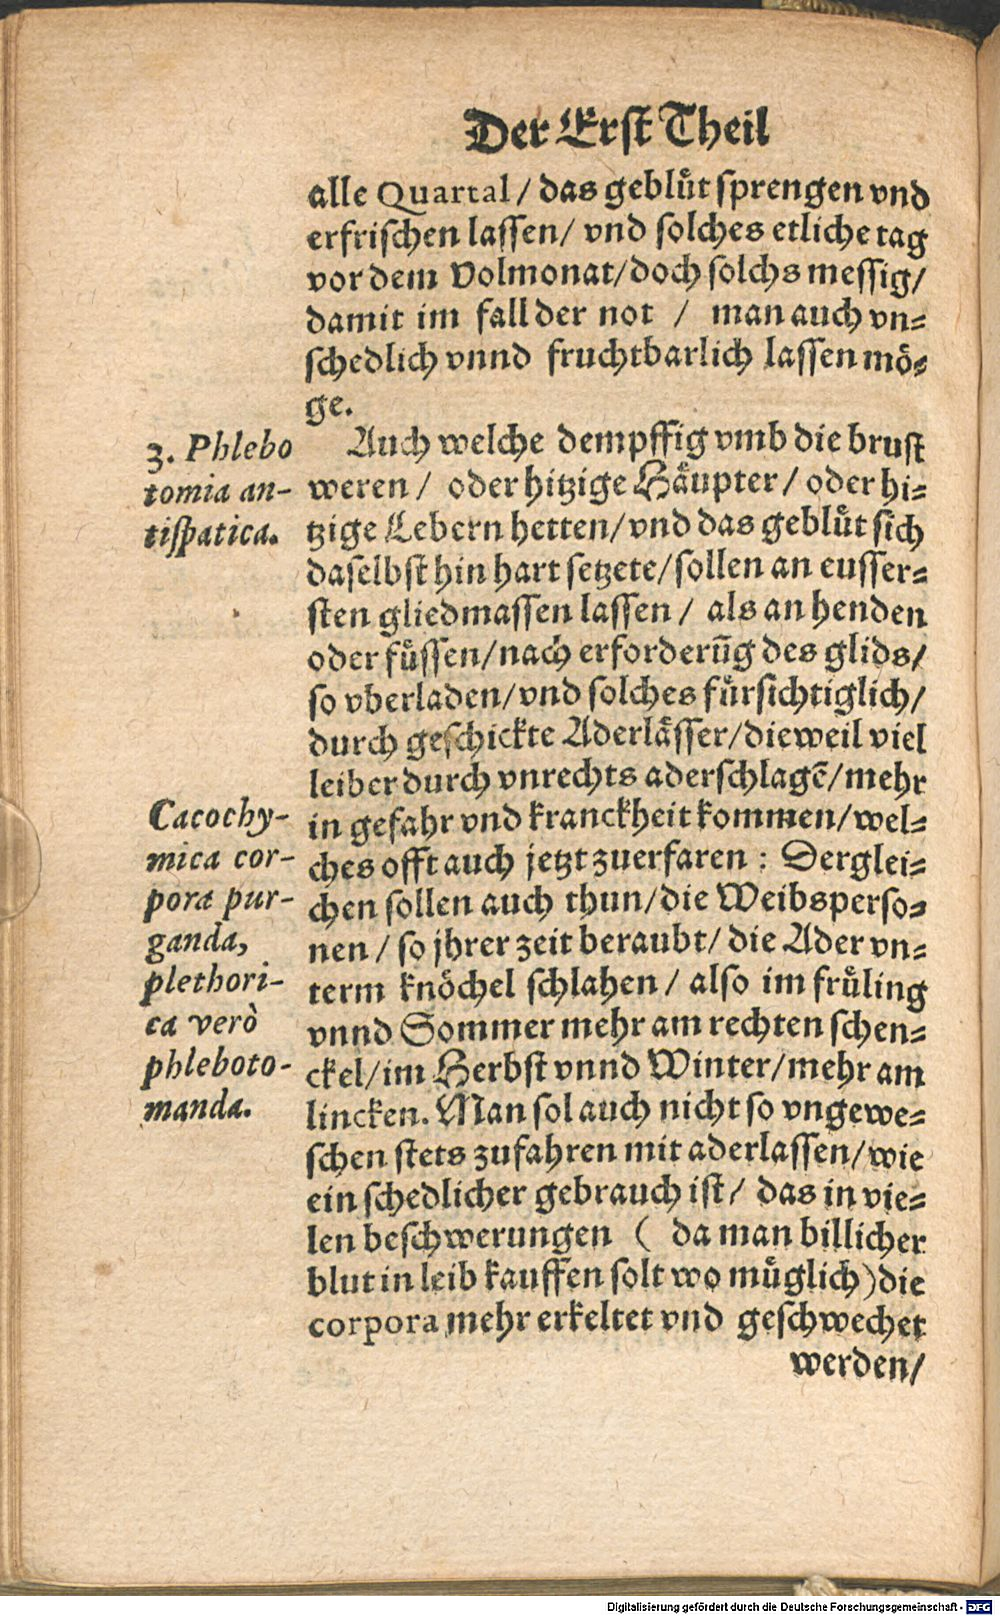 Der Erst Theil
alle Quartal / das geblüt sprengen vnd
erfrischen lassen / vnd solches etliche tag
vor dem Volmonat / doch solchs messig /
damit im fall der not / man auch vn=
schedlich vnnd fruchtbarlich lassen mö=
ge.
Auch welche dempffig vmb die brust
weren / oder hitzige Häupter / oder hi=
tzige Lebern hetten / vnd das geblüt sich
daselbst hin hart setzete / sollen an eusser=
sten gliedmassen lassen / als an henden
oder füssen / nach erforderūg des glids /
so vberladen / vnd solches fürsichtiglich /
durch geschickte Aderlässer / dieweil viel
leiber durch vnrechts aderschlagē / mehr
in gefahr vnd kranckheit kommen / wel=
ches offt auch jetzt zuerfaren : Derglei=
chen sollen auch thun / die Weibsperso=
nen / so jhrer zeit beraubt / die Ader vn=
term knöchel schlahen / also im früling
vnnd Sommer mehr am rechten schen=
ckel / im Herbst vnnd Winter / mehr am
lincken. Man sol auch nicht so vngewe=
schen stets zufahren mit aderlassen / wie
ein schedlicher gebrauch ist / das in vie=
len beschwerungen ( da man billicher
blut in leib kauffen solt wo müglich ) die
corpora mehr erkeltet vnd geschwechet
werden /
3. Phlebo
tomia an-
tispatica.
Cacochy-
mica cor-
pora pur-
ganda,
plethori-
ca verò
phleboto-
manda.
Digitalisierung gefördert durch die Deutsche Forschungsgemeinschaft - DFG